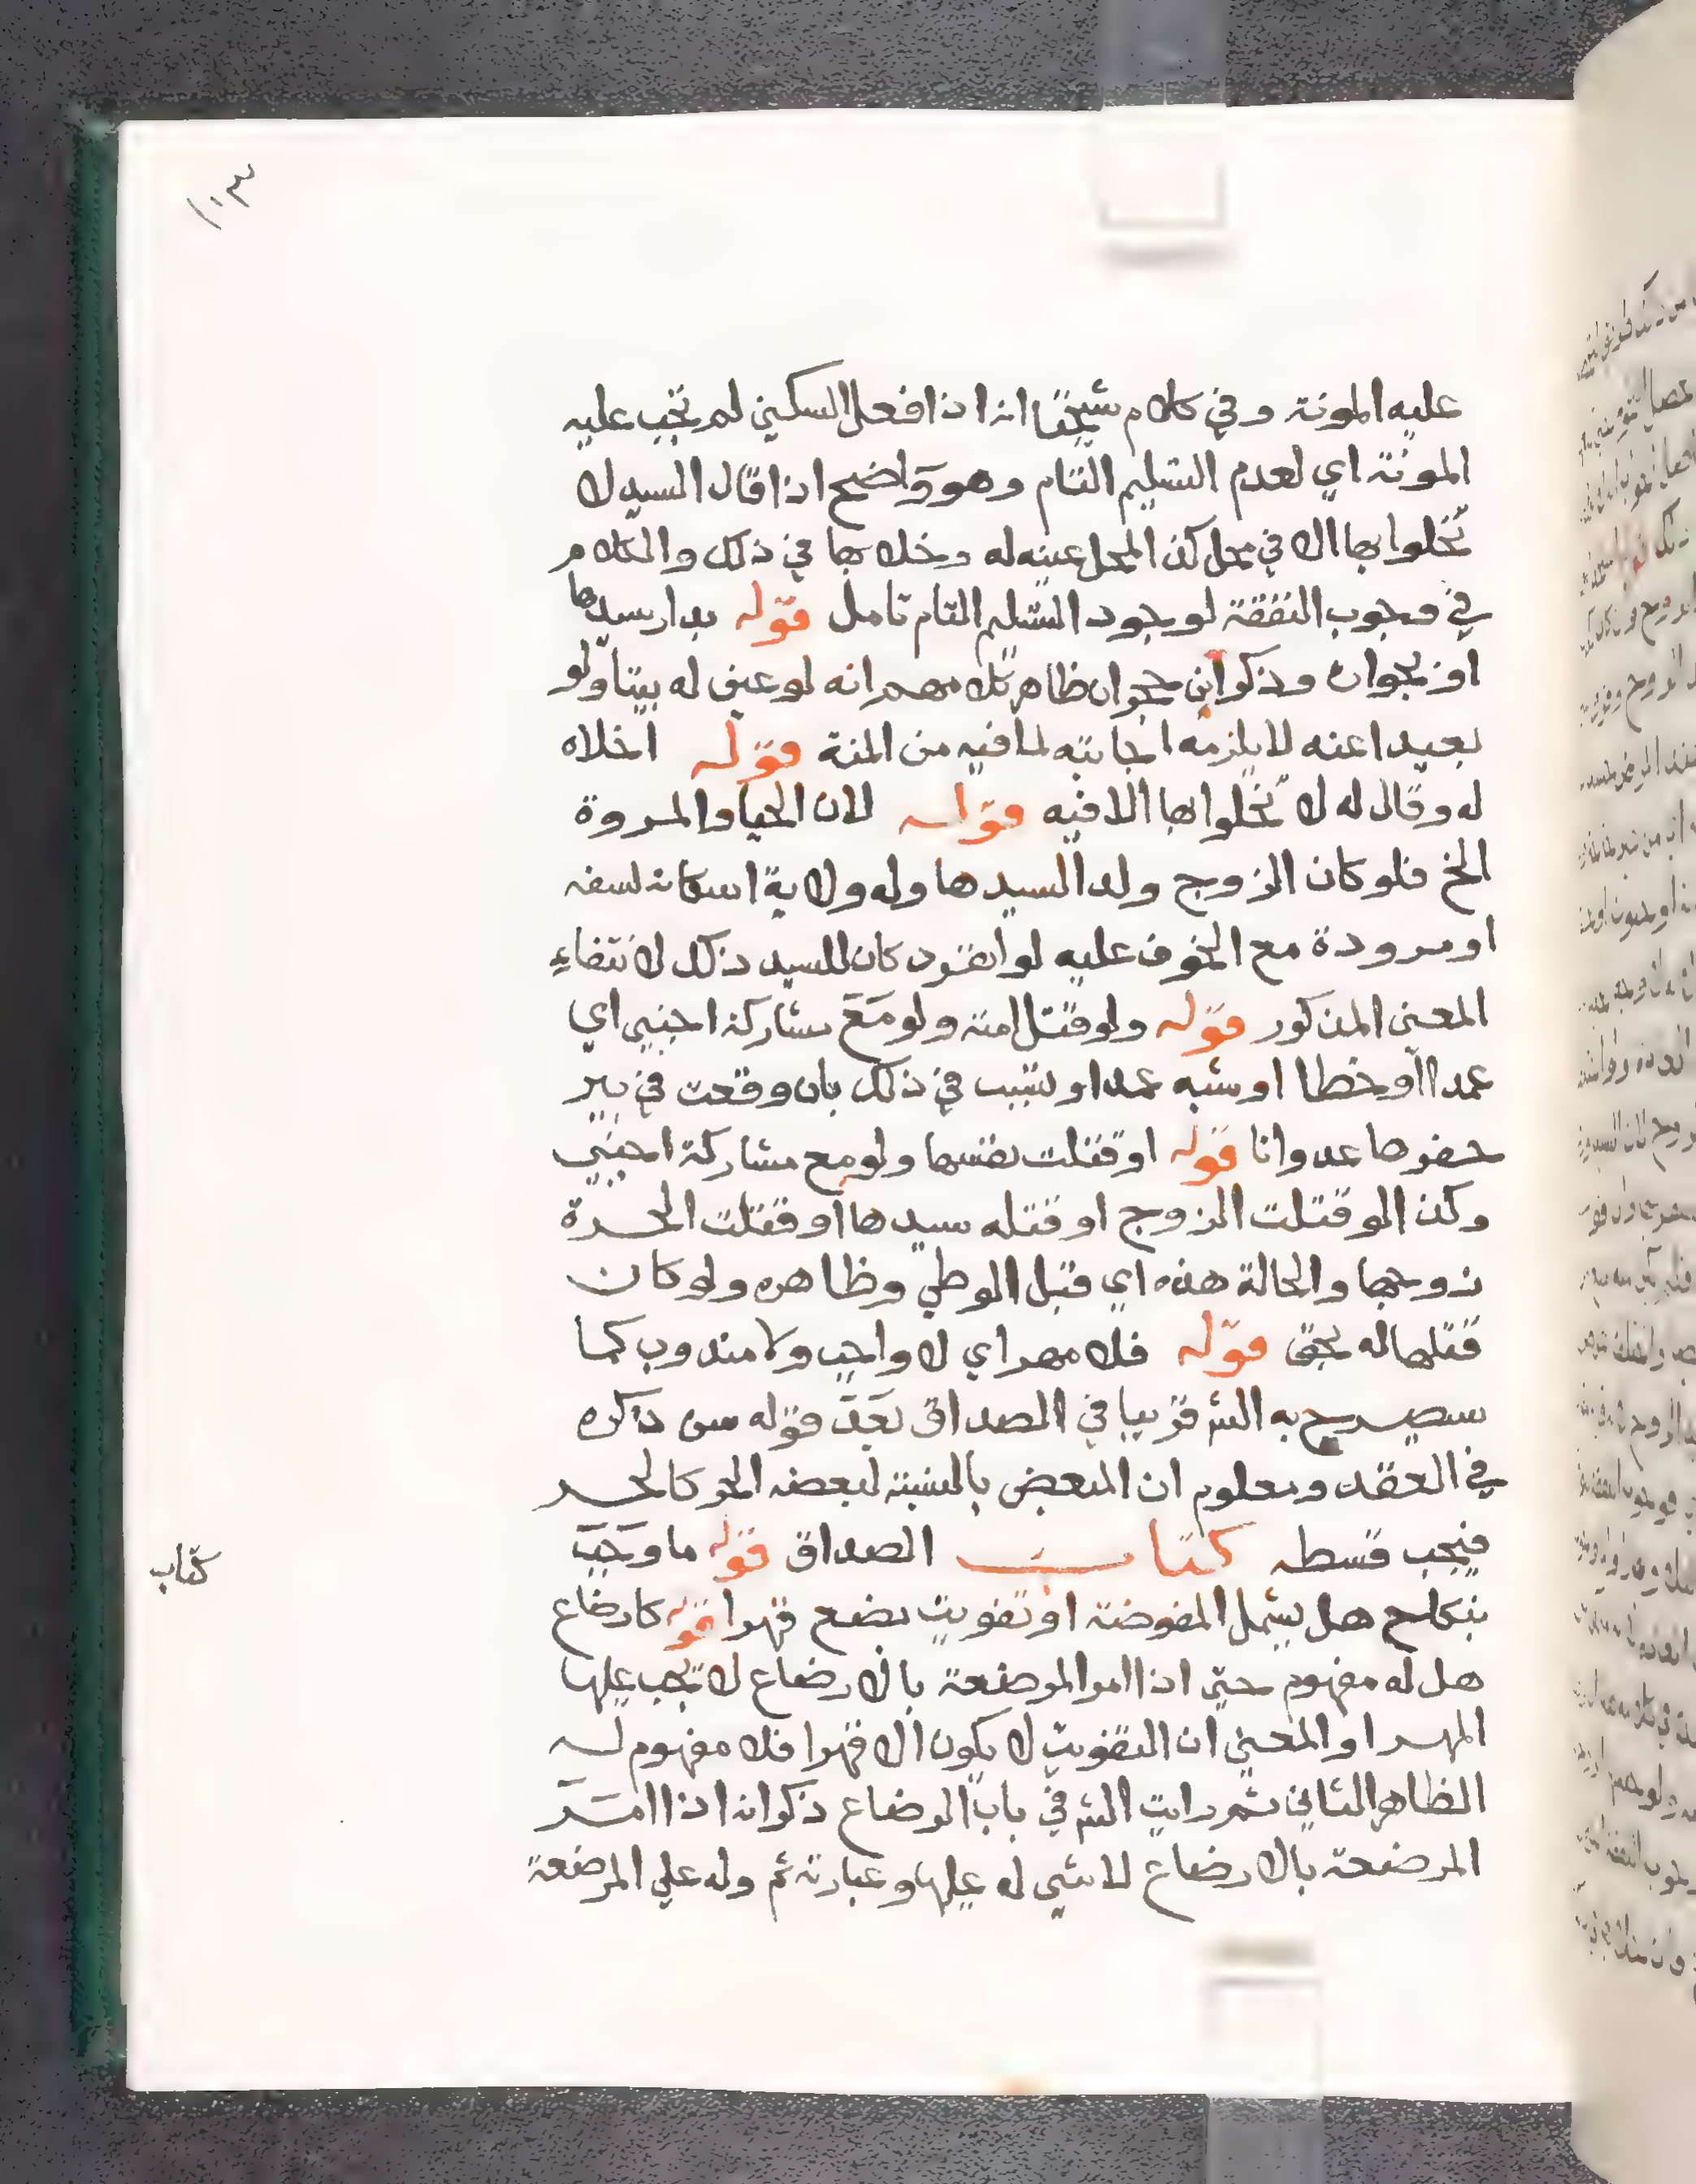 ١٠٣
عليه المونة وفي كلام شيخنا انه اذا فعل السكين لم تجب عليه
المونة اي لعدم التسليم التام وهو واضح اذا قال السيد لا
تخلوا بها الا في محل كذا المحل عينه له وخلا بها في ذلك والكلام
في وجوب النفقة لوجود التسليم التام تامل قوله بدار سيدها
او بجواره وذكر ابن حجر ان ظاهر كلامهم انه لو عين له بيتا ولو
بعيدا عنه لا يلزمه اجابته لما فيه من المنة قوله اخلاه
له وقال له لا تخلوا بها الا فيه قوله لان الحيا والمروة
الخ فلو كان الزوج ولد السيدها وله ولاية اسكانه لسفه
او مرودة مع الخوف عليه لو انفرد كان للسيد ذلك لانتفاء
المعنى المذكور قوله ولو قتل امته ولو مع مشاركة اجنبي اي
عمدا او خطا او شبه عمد او تسبب في ذلك بان وقعت في بير
حفرها عدوانا قوله او قتلت نفسها ولو مع مشاركة اجنبي
وكذا لو قتلت الزوج او قتله سيدها او قتلت الحرة
زوجها والحالة هذه اي قبل الوطي وظاهره ولو كان
قتلها له بحق قوله فلا مهر اي لا واجب ولا مندوب كما
سيصرح به الش قريبا في الصداق بعد قوله سن ذكره
في العقد ومعلوم ان المبعض بالنسبة لبعضه الحر كالحر
فيجب قسطه كتاب الصداق قوله ما وجب
بنكاح هل يشمل المفوضة او تفويت بضع قهرا قوله كارضاع
هل له مفهوم حتى اذا امر المرضعة بالارضاع لا يجب عليها
المهر او المعنى ان التفويت لا يكون الا قهرا فلا مفهوم له
الظاهر الثاني ثم رايت الش في باب الرضاع ذكر انه اذا امر
المرضعة بالارضاع لا شي له عليها وعبارته ثم وله على المرضعة
كتاب